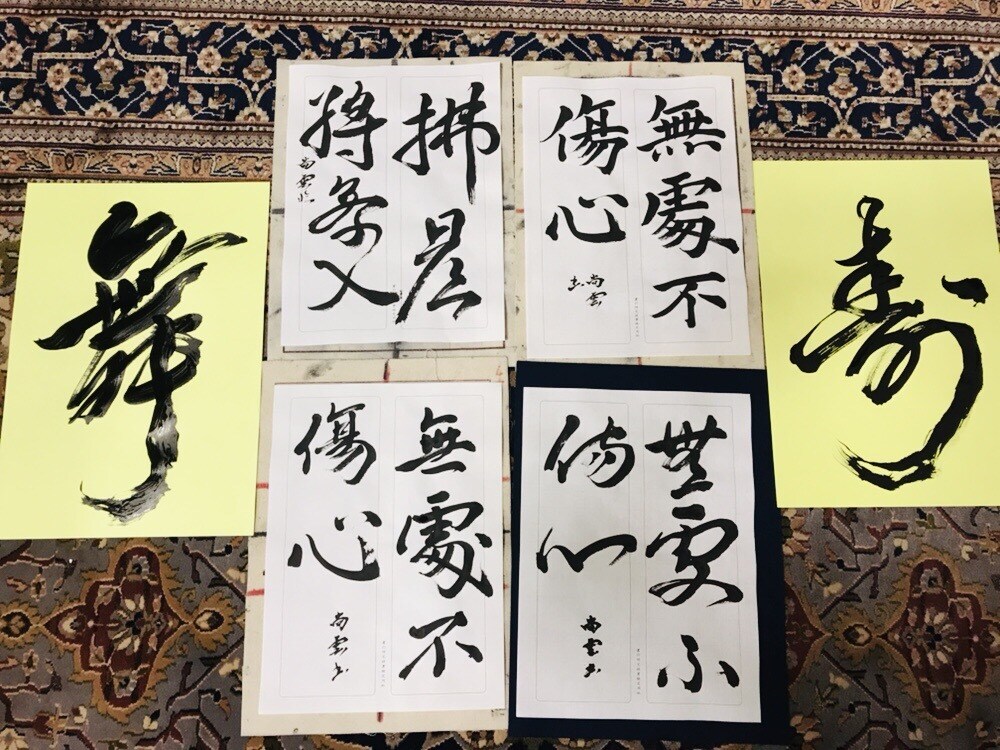 舞
拂
將 入
尚雲臨
無處不
傷心
尚雲書
壽
無處不
傷心
尚雲書
無處不
傷心
尚雲書